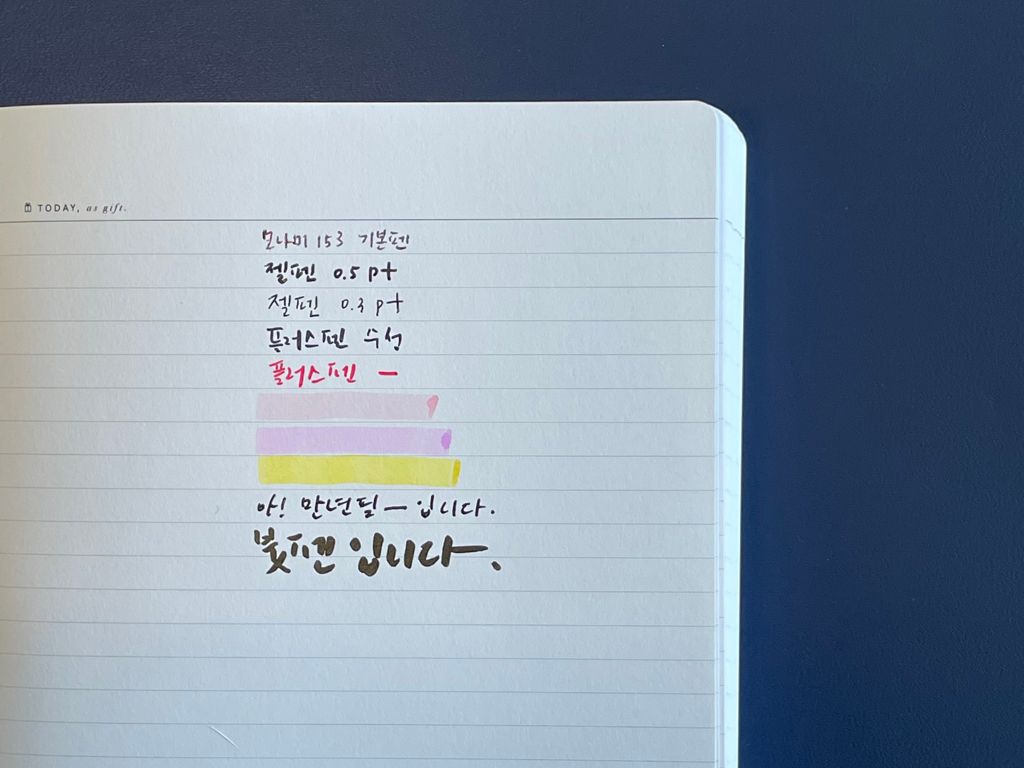 TODAY, as gift.
모나미 153 기본펜
젤펜 0.5 pt
젤펜 0.3 pt
플러스펜 수성
플러스펜 —
아! 만년필 — 입니다.
붓펜 입니다.